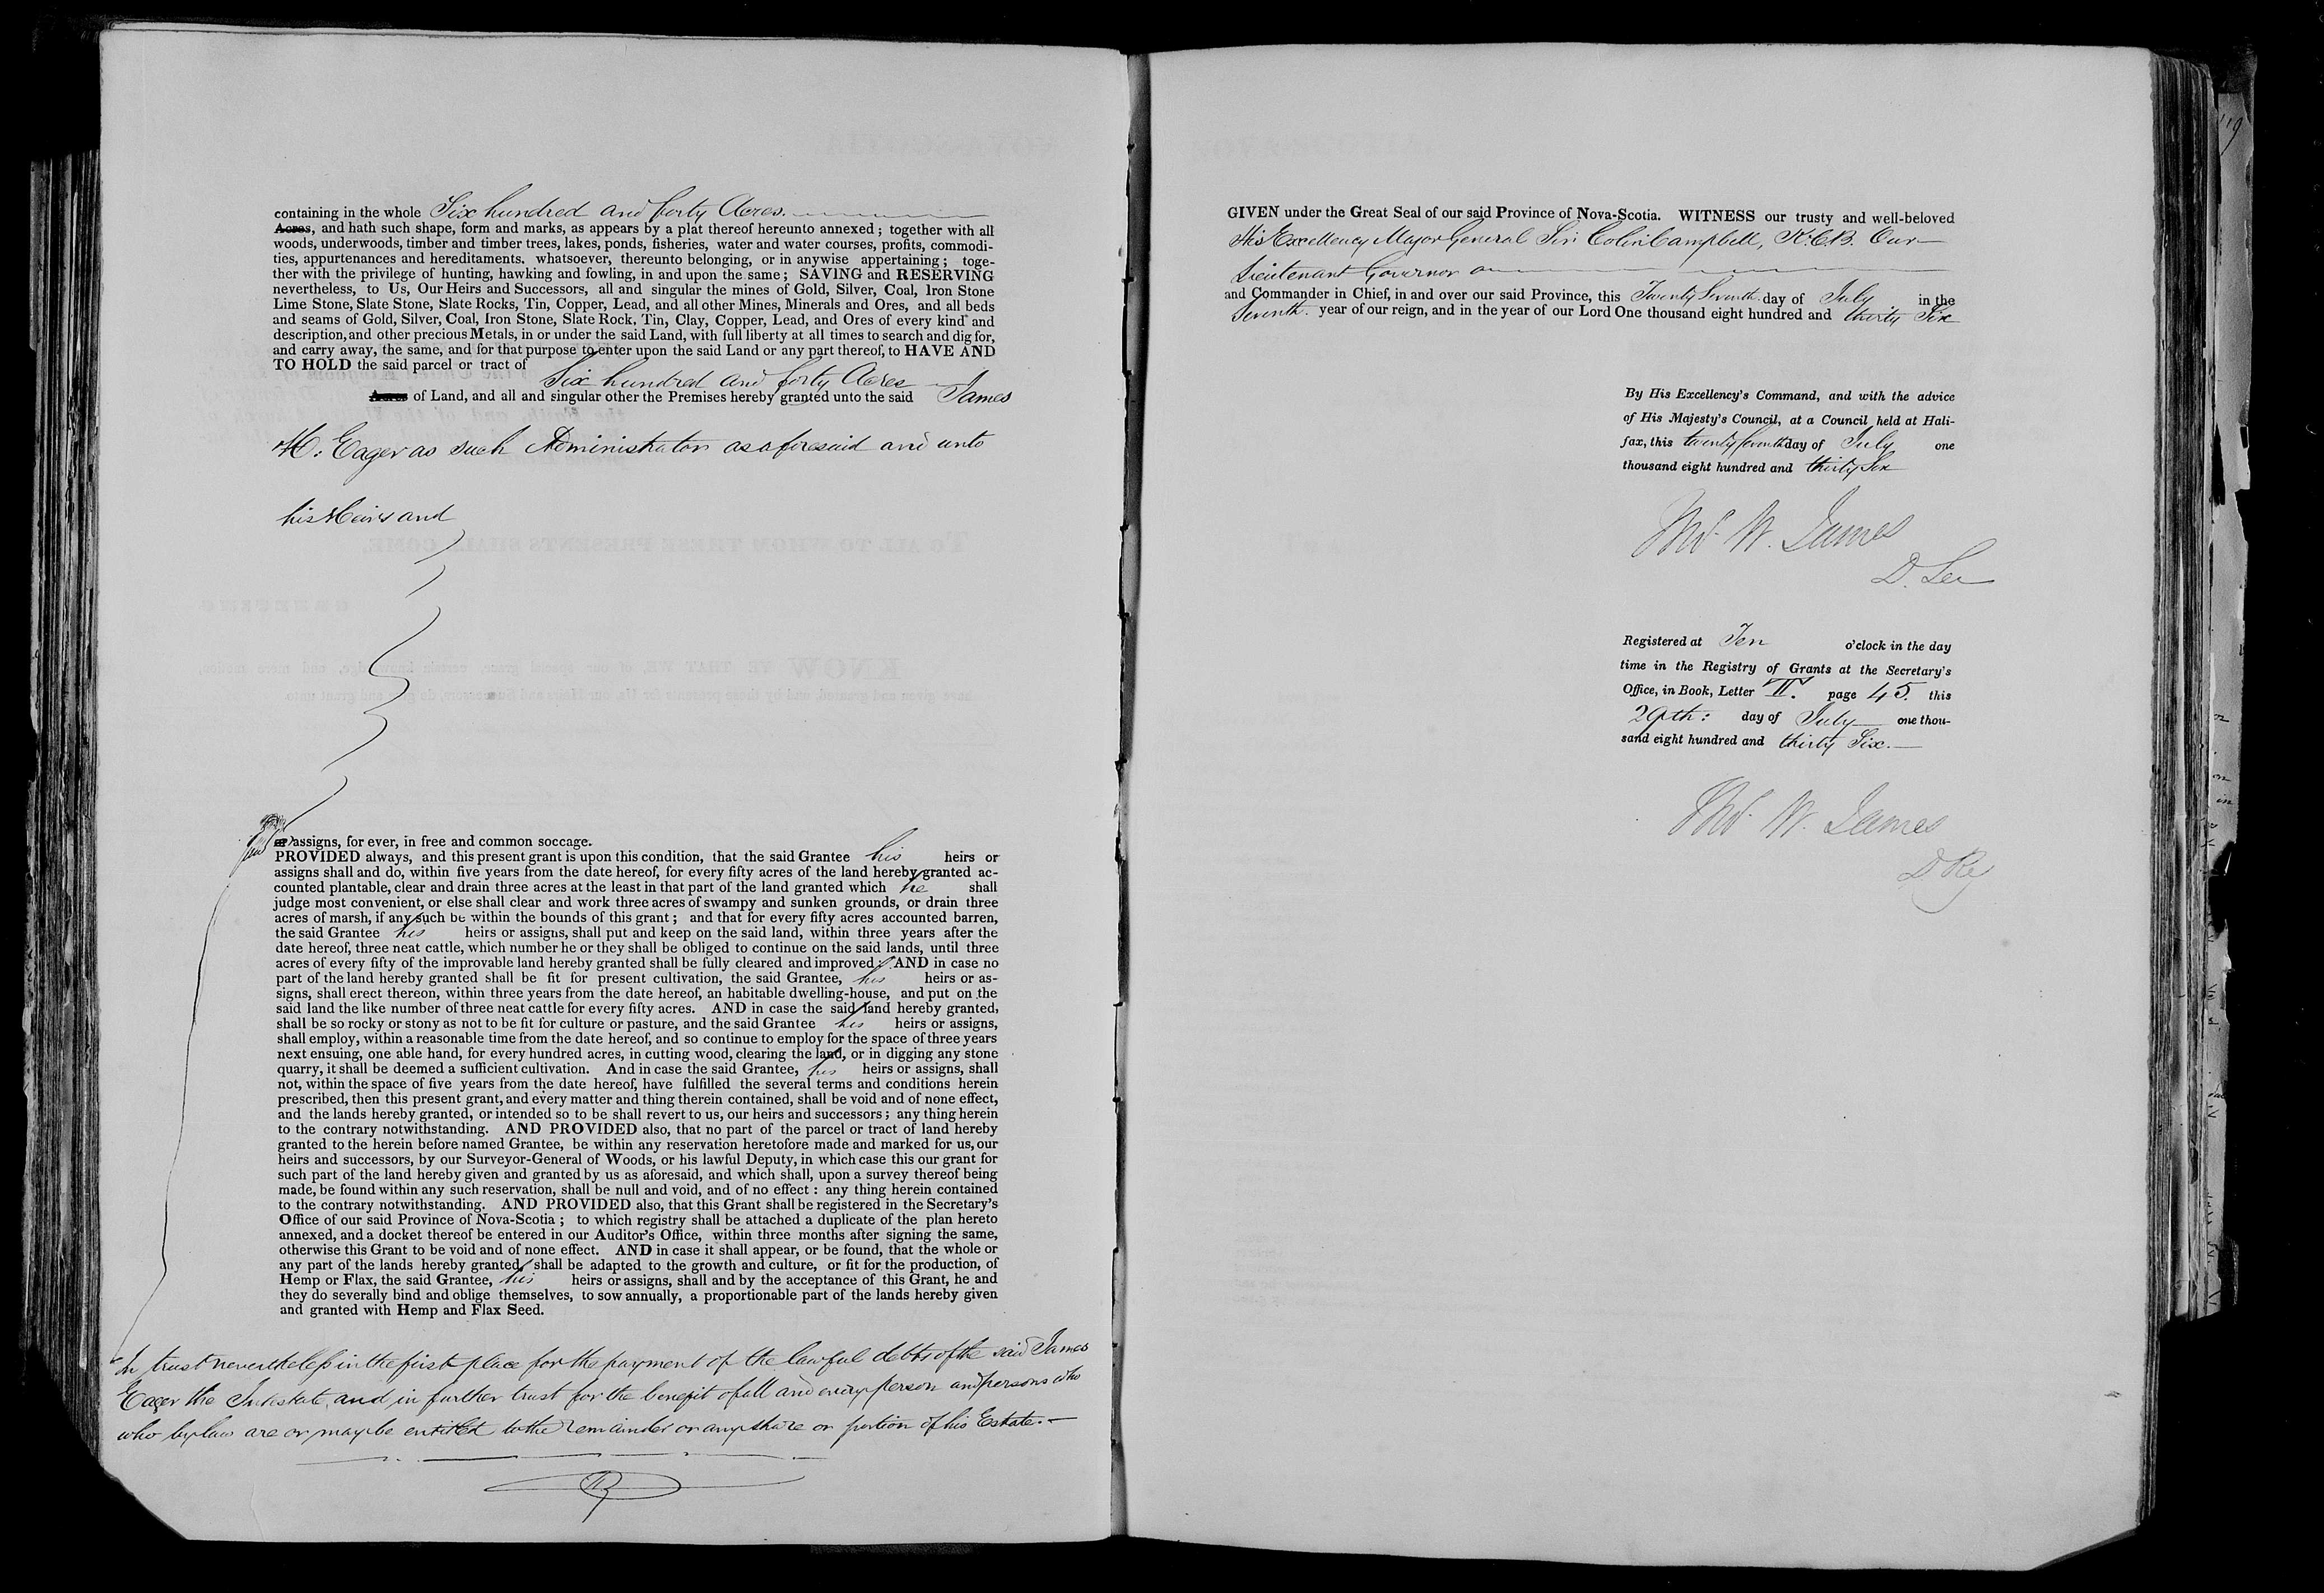 containing in the whole Six hundred and forty Acres.
Acres, and hath such shape, form and marks, as appears by a plat thereof hereunto annexed; together with all
woods, underwoods, timber and timber trees, lakes, ponds, fisheries, water and water courses, profits, commodi-
ties, appurtenances and hereditaments. whatsoever, thereunto belonging, or in anywise appertaining; toge-
ther with the privilege of hunting, hawking and fowling, in and upon the same; SAVING and RESERVING
nevertheless, to Us, Our Heirs and Successors, all and singular the mines of Gold, Silver, Coal, Iron Stone
Lime Stone, Slate Stone, Slate Rocks, Tin, Copper, Lead, and all other Mines, Minerals and Ores, and all beds
and seams of Gold, Silver, Coal, Iron Stone, Slate Rock, Tin, Clay, Copper, Lead, and Ores of every kind and
description, and other precious Metals, in or under the said Land, with full liberty at all times to search and dig for,
and carry away, the same, and for that purpose to enter upon the said Land or any part thereof, to HAVE AND
TO HOLD the said parcel or tract of
Six hundred and forty Acres
Acres of Land, and all and singular other the Premises hereby granted unto the said James
H. Eager as such Administrator as aforesaid and unto
his Heirs and
and assigns, for ever, in free and common soccage.
PROVIDED always, and this present grant is upon this condition, that the said Grantee his heirs or
assigns shall and do, within five years from the date hereof, for every fifty acres of the land hereby granted ac-
counted plantable, clear and drain three acres at the least in that part of the land granted which he shall
judge most convenient, or else shall clear and work three acres of swampy and sunken grounds, or drain three
acres of marsh, if any such be within the bounds of this grant; and that for every fifty acres accounted barren,
the said Grantee his heirs or assigns, shall put and keep on the said land, within three years after the
date hereof, three neat cattle, which number he or they shall be obliged to continue on the said lands, until three
acres of every fifty of the improvable land hereby granted shall be fully cleared and improved: AND in case no
part of the land hereby granted shall be fit for present cultivation, the said Grantee, his heirs or as-
signs, shall erect thereon, within three years from the date hereof, an habitable dwelling-house, and put on the
said land the like number of three neat cattle for every fifty acres. AND in case the said land hereby granted,
shall be so rocky or stony as not to be fit for culture or pasture, and the said Grantee his heirs or assigns,
shall employ, within a reasonable time from the date hereof, and so continue to employ for the space of three years
next ensuing, one able hand, for every hundred acres, in cutting wood, clearing the land, or in digging any stone
quarry, it shall be deemed a sufficient cultivation. And in case the said Grantee, his heirs or assigns, shall
not, within the space of five years from the date hereof, have fulfilled the several terms and conditions herein
prescribed, then this present grant, and every matter and thing therein contained, shall be void and of none effect,
and the lands hereby granted, or intended so to be shall revert to us, our heirs and successors; any thing herein
to the contrary notwithstanding. AND PROVIDED also, that no part of the parcel or tract of land hereby
granted to the herein before named Grantee, be within any reservation heretofore made and marked for us, our
heirs and successors, by our Surveyor-General of Woods, or his lawful Deputy, in which case this our grant for
such part of the land hereby given and granted by us as aforesaid, and which shall, upon a survey thereof being
made, be found within any such reservation, shall be null and void, and of no effect: any thing herein contained
to the contrary notwithstanding. AND PROVIDED also, that this Grant shall be registered in the Secretary's
Office of our said Province of Nova-Scotia; to which registry shall be attached a duplicate of the plan hereto
annexed, and a docket thereof be entered in our Auditor's Office, within three months after signing the same,
otherwise this Grant to be void and of none effect. AND in case it shall appear, or be found, that the whole or
any part of the lands hereby granted, shall be adapted to the growth and culture, or fit for the production, of
Hemp or Flax, the said Grantee, his heirs or assigns, shall and by the acceptance of this Grant, he and
they do severally bind and oblige themselves, to sow annually, a proportionable part of the lands hereby given
and granted with Hemp and Flax Seed.
In trust nevertheless in the first place for the payment of the lawful debts of the said James
Eager the Intestate, and in further trust for the benefit of all and every person and persons who
who by law are or may be entitled to the remainder or any share or portion of his Estate.
GIVEN under the Great Seal of our said Province of Nova-Scotia. WITNESS our trusty and well-beloved
His Excellency Major General Sir Colin Campbell, K.C.B. Our
Lieutenant Governor
and Commander in Chief, in and over our said Province, this Twenty Seventh day of July in the
Seventh year of our reign, and in the year of our Lord One thousand eight hundred and thirty Six
By His Excellency's Command, and with the advice
of His Majesty's Council, at a Council held at Hali-
fax, this twenty seventh day of July one
thousand eight hundred and thirty Six
Thos. W. James
D. Sec
Registered at Ten o'clock in the day
time in the Registry of Grants at the Secretary's
Office, in Book, Letter page 45. this
29th: day of July one thou-
sand eight hundred and thirty Six.
Thos. W. James
D Reg